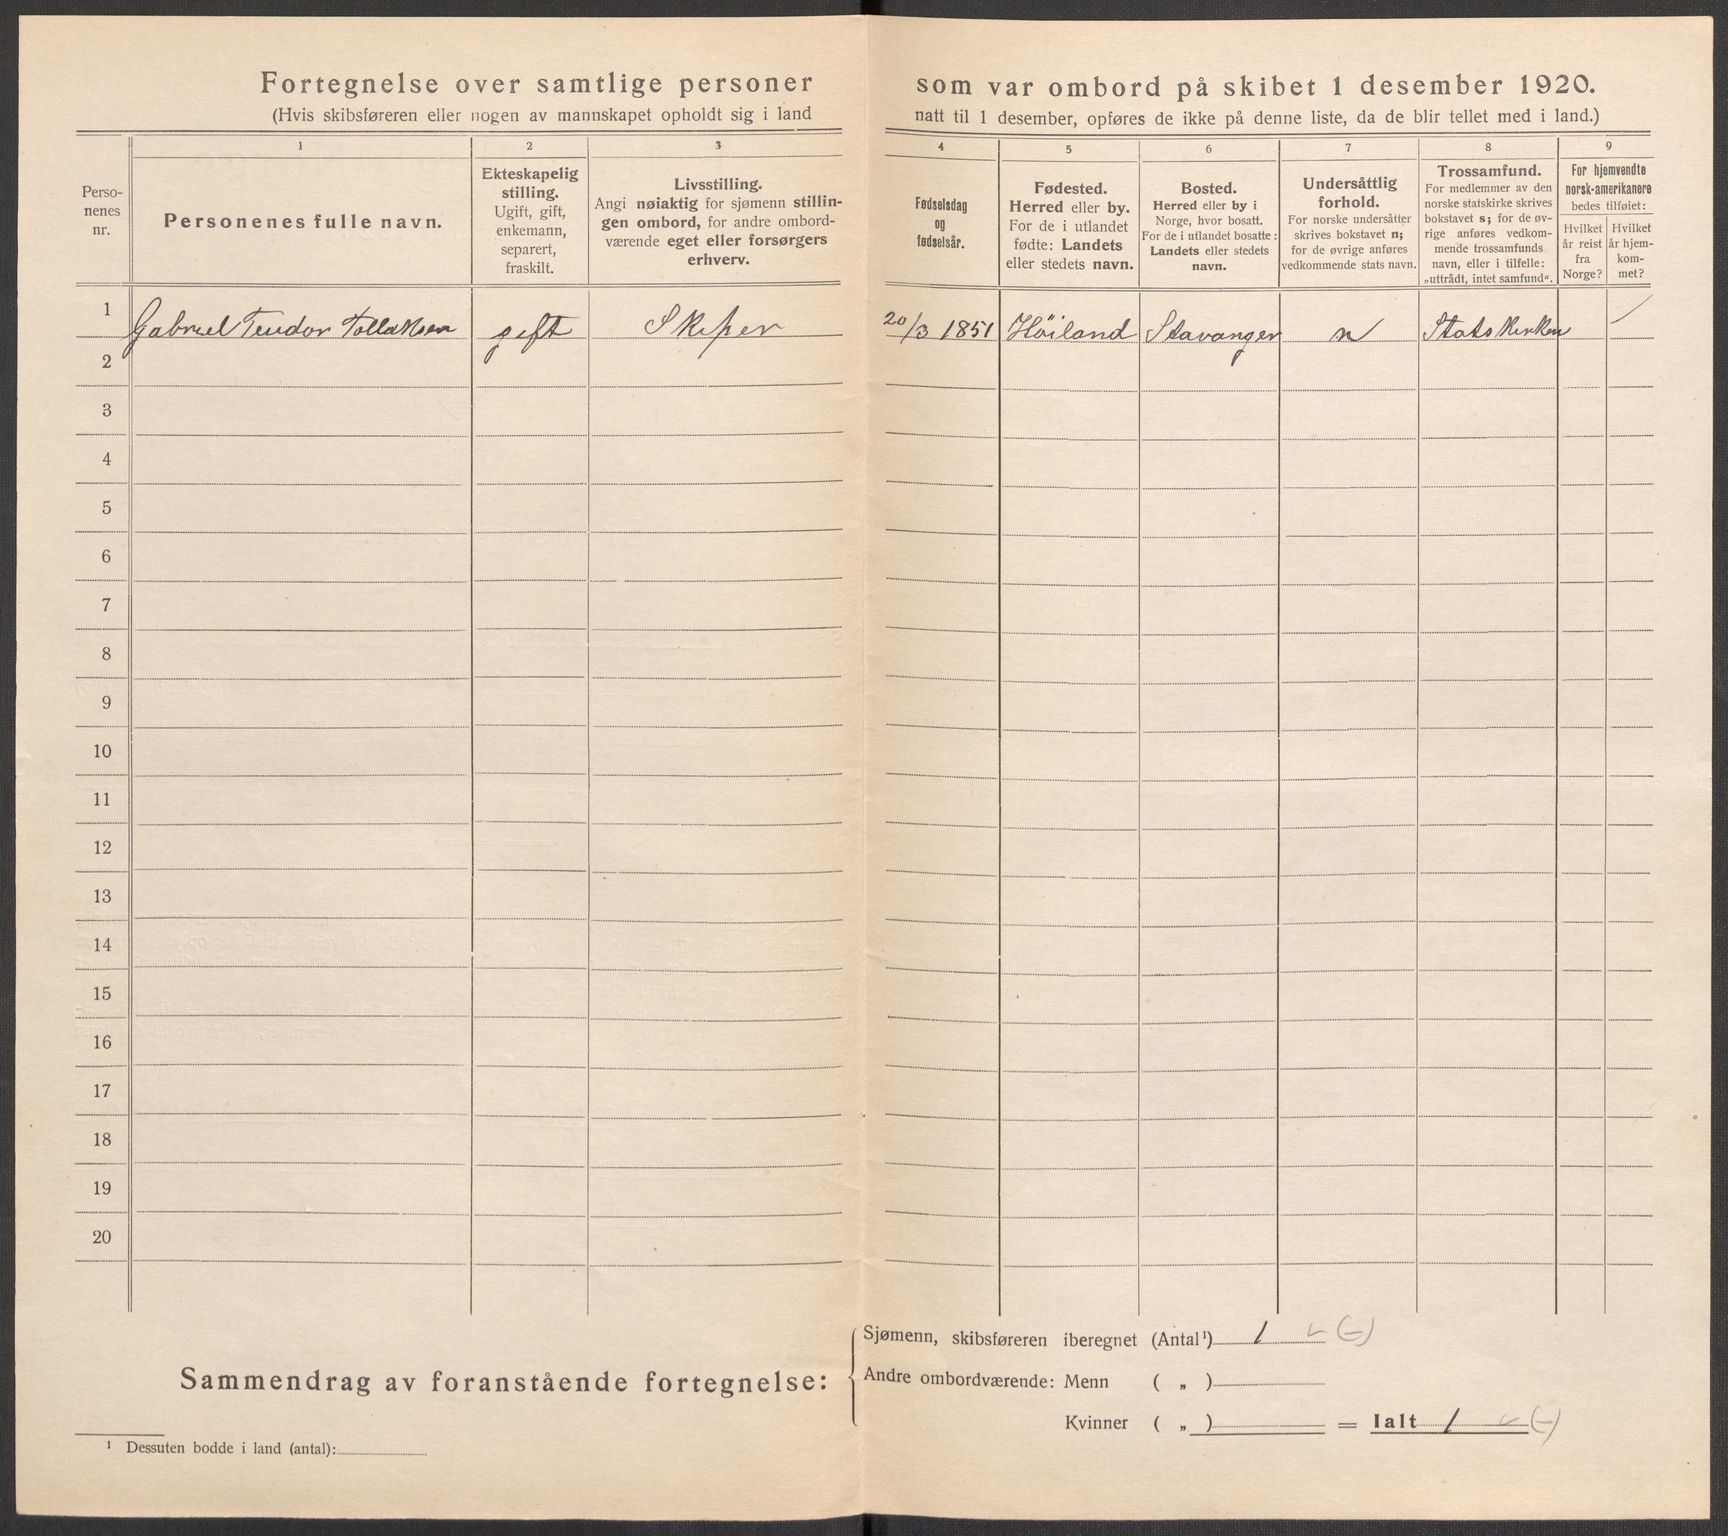 Fortegnelse over samtlige personer som var ombord på skibet 1 desember 1920.
(Hvis skibsføreren eller nogen av mannskapet opholdt sig i land natt til 1 desember, opføres de ikke på denne liste, da de blir tellet med i land.)
1 2 3 4 5 6 7 8 9
Perso-
nenes
nr.
Personenes fulle navn.
Ekteskapelig
stilling.
Ugift, gift,
enkemann,
separert,
fraskilt.
Livsstilling.
Angi nøiaktig for sjømenn stillin-
gen ombord, for andre ombord-
værende eget eller forsørgers
erhverv.
Fødselsdag
og
fødselsår.
Fødested.
Herred eller by.
For de i utlandet
fødte: Landets
eller stedets navn.
Bosted.
Herred eller by i
Norge, hvor bosatt.
For de i utlandet bosatte:
Landets eller stedets
navn.
Undersåttlig
forhold.
For norske undersåtter
skrives bokstavet n;
for de øvrige anføres
vedkommende stats navn.
Trossamfund.
For medlemmer av den
norske statskirke skrives
bokstavet s; for de øv-
rige anføres vedkom-
mende trossamfunds
navn, eller i tilfelle:
„uttrådt, intet samfund“.
For hjemvendte
norsk-amerikanere
bedes tilføiet:
Hvilket
år reist
fra
Norge?
Hvilket
år hjem-
kom-
met?
1 Gabriel Teudor Tollaksen gift Skiper 20/3 1851 Höiland Stavanger n Statskirken /
2
3
4
5
6
7
8
9
10
11
12
13
14
15
16
17
18
19
20
Sammendrag av foranstående fortegnelse:
Sjømenn, skibsføreren iberegnet (Antal¹) 1 (-)
Andre ombordværende: Menn ( „ )
Kvinner ( „ ) = Ialt 1 (-)
¹ Dessuten bodde i land (antal):